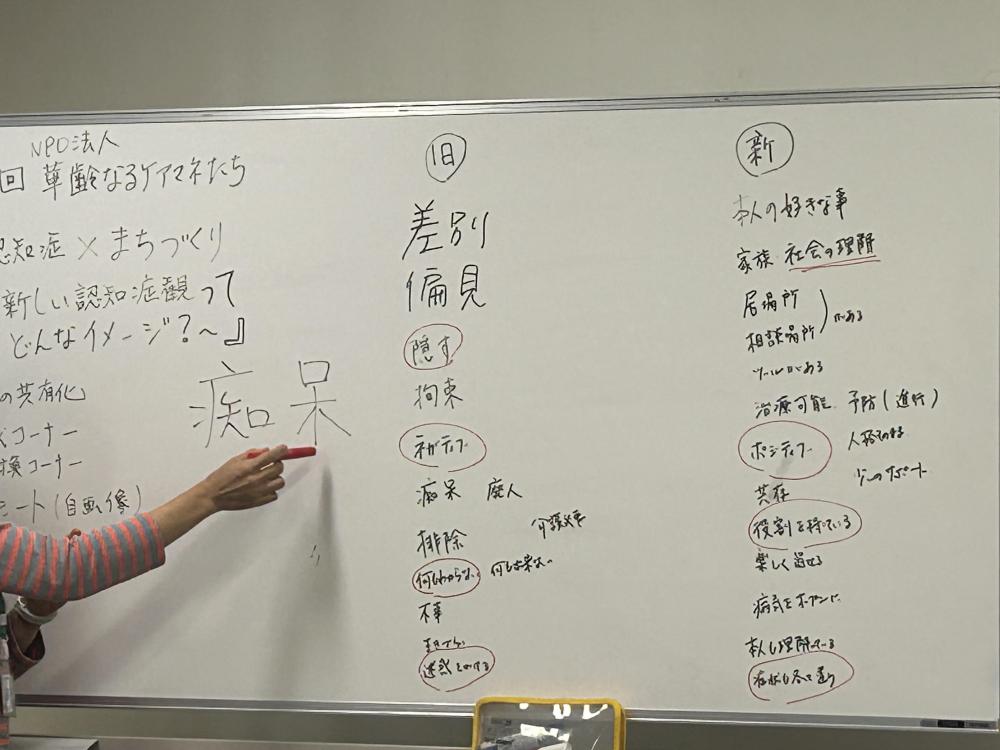 NPO法人
回 華齢なるケアマネたち
認知症 × まちづくり
新しい認知症観って
どんなイメージ?~』
の共有化
コーナー
換コーナー
ート(自画像)
痴呆
旧
差別
偏見
隠す
拘束
ネガティブ
痴呆 廃人
排除
何もわからない 何も出来ない
不幸
迷惑をかける
新
本人の好きな事
家族 社会の理解
居場所
相談場所
がある
ツールがある
治療可能 予防(進行)
ポジティブ
共存
役割を持っている
楽しく過せる
病気をオープンに
本人も理解している